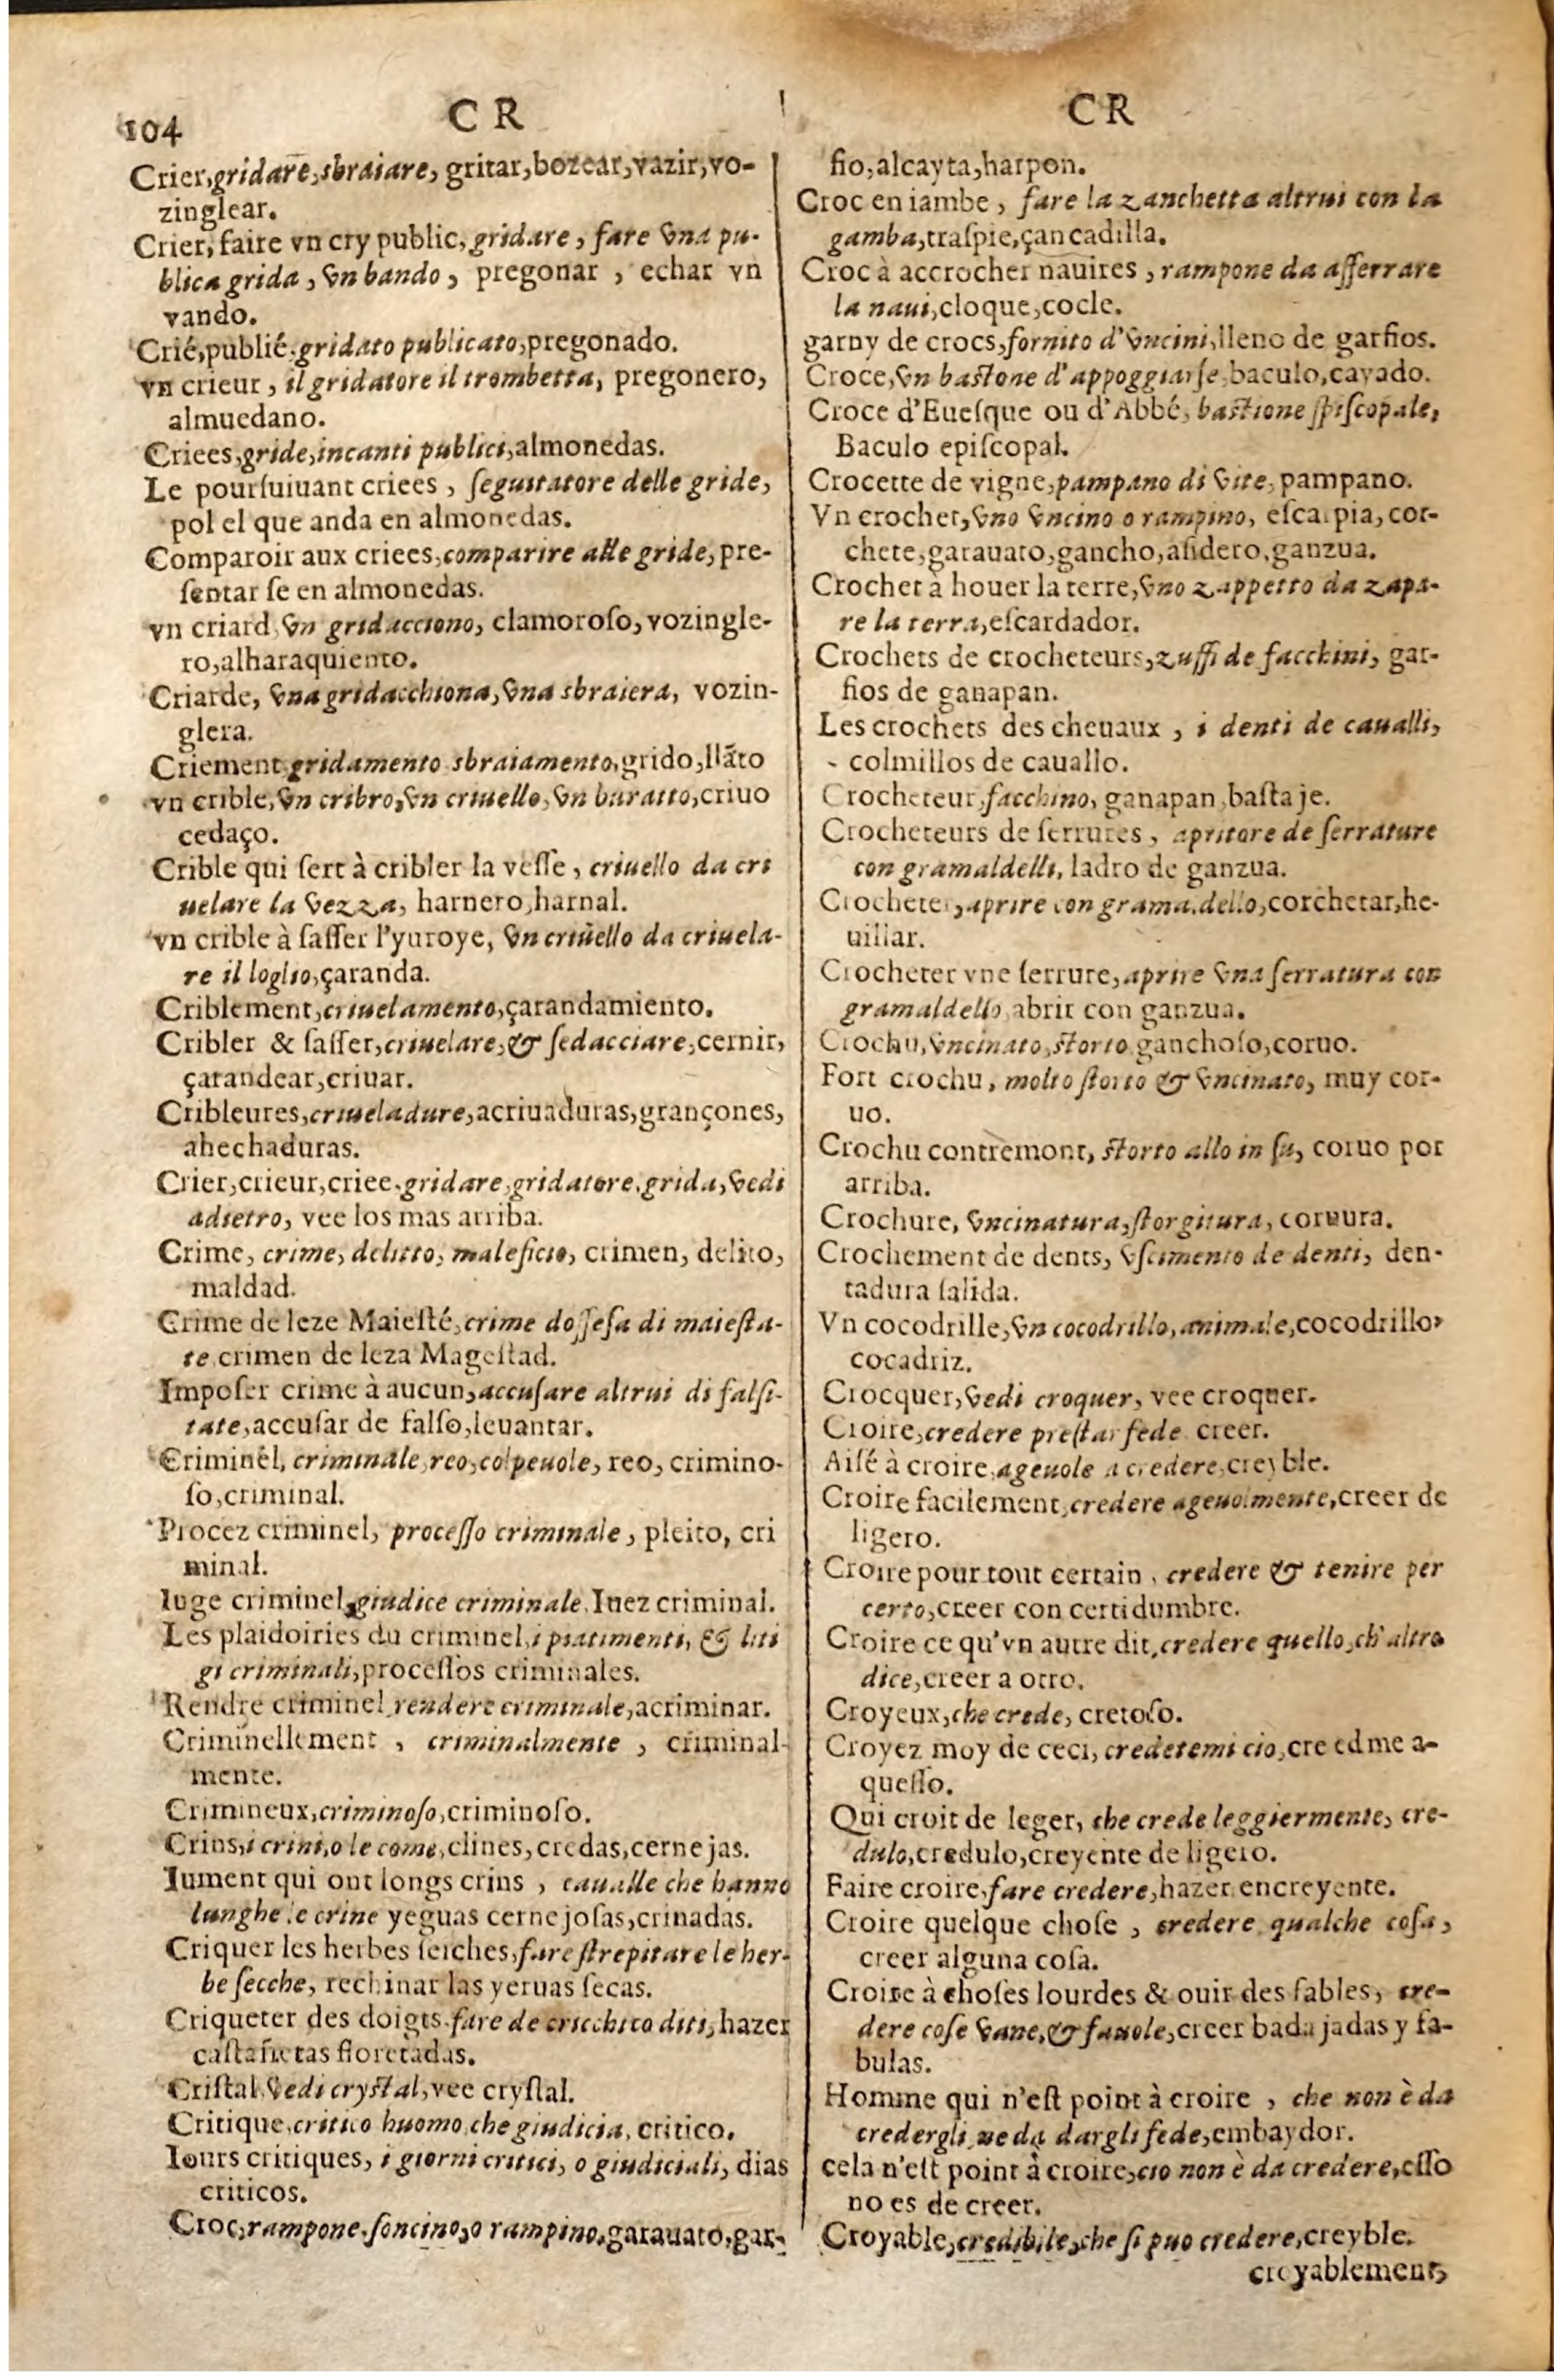 104
C R
Crier,gridare,sbraiare, gritar,bozear,vazir,vo-
zinglear.
Crier, faire vn cry public, gridare, fare vna pu-
blica grida, vn bando, pregonar, echar vn
vando.
Crié,publié,gridato publicato,pregonado.
vn crieur, il gridatore il trombetta, pregonero,
almuedano.
Criees,gride,incanti publici,almonedas.
Le pourſuiuant criees, ſeguitatore delle gride,
pol el que anda en almonedas.
Comparoir aux criees,comparire alle gride, pre-
ſentar ſe en almonedas.
vn criard, vn gridacciono, clamoroſo, vozingle-
ro,alharaquiento.
Criarde, vna gridacchiona,vna sbraiera, vozin-
glera.
Criement gridamento sbraiamento,grido,llãto
vn crible, vn cribro,vn criuello,vn buratto,criuo
cedaço.
Crible qui ſert à cribler la veſſe, criuello da cri
uelare la vezza, harnero,harnal.
vn crible à ſaſſer l'yuroye, vn criuello da criuela-
re il loglio,çaranda.
Criblement,criuelamento,çarandamiento.
Cribler & ſaſſer,criuelare,& ſedacciare,cernir,
çarandear,criuar.
Cribleures,criueladure,acriuaduras,grançones,
ahechaduras.
Crier,crieur,criee.gridare,gridatore,grida,vedi
adietro, vee los mas arriba.
Crime, crime, delitto, maleficio, crimen, delito,
maldad.
Crime de leze Maieſté,crime doffeſa di maieſta-
te crimen de leza Mageſtad.
Impoſer crime à aucun,accuſare altrui di falſi-
tate,accuſar de falſo,leuantar.
Criminel, criminale,reo,colpeuole, reo, crimino-
ſo,criminal.
Procez criminel, proceſſo criminale, pleito, cri
minal.
Iuge criminel,giudice criminale. Iuez criminal.
Les plaidoiries du criminel,i piatimenti, & liti
gi criminali,proceſſos criminales.
Rendre criminel,rendere criminale,acriminar.
Criminellement, criminalmente, criminal-
mente.
Crimineux,criminoſo,criminoſo.
Crins,i crini,o le come,clines,credas,cernejas.
Iument qui ont longs crins, caualle che hanno
lunghe le crine yeguas cernejoſas,crinadas.
Criquer les herbes ſeiches,fare ſtrepitare le her-
be ſecche, rechinar las yeruas ſecas.
Criqueter des doigts.fare de cricchi co diti,hazer
caſtañetas fioretadas.
Criſtal,vedi cryſtal,vee cryſtal.
Critique,critico huomo che giudicia, critico.
Iours critiques, i giorni critici, o giudiciali, dias
criticos.
Croc,rampone.foncino,o rampino,garauato,gar-
C R
fio,alcayta,harpon.
Croc en iambe, fare la zanchetta altrui con la
gamba,traſpie,çancadilla.
Croc à accrocher nauires, rampone da afferrare
la naui,cloque,cocle.
garny de crocs,fornito d'vncini,lleno de garfios.
Croce,vn baſtone d'appoggiarſe,baculo,cayado.
Croce d'Eueſque ou d'Abbé, baſtione ſpiſcopale,
Baculo epiſcopal.
Crocette de vigne,pampano di vite,pampano.
Vn crochet,vno vncino o rampino, eſcarpia, cor-
chete,garauato,gancho,aſidero,ganzua.
Crochet à houer la terre,vno zappetto da zapa-
re la terra,eſcardador.
Crochets de crocheteurs,zuffi de facchini, gar-
fios de ganapan.
Les crochets des cheuaux, i denti de caualli,
colmillos de cauallo.
Crocheteur,facchino, ganapan,baſtaje.
Crocheteurs de ſerrures, apritore de ſerrature
con gramaldelli, ladro de ganzua.
Crocheter,aprire con gramaldello,corchetar,he-
uillar.
Crocheter vne ſerrure,aprire vna ſerratura con
gramaldello abrir con ganzua.
Crochu,vncinato,ſtorto ganchoſo,coruo.
Fort crochu, molto ſtorto & vncinato, muy cor-
uo.
Crochu contremont, ſtorto allo in ſu, coruo por
arriba.
Crochure, vncinatura,ſtorgitura, coruura.
Crochement de dents, vſcimento de denti, den-
tadura ſalida.
Vn cocodrille,vn cocodrillo,animale,cocodrillo,
cocadriz.
Crocquer,vedi croquer, vee croquer.
Croire,credere preſtar fede creer.
Aiſé à croire,ageuole a credere,creyble.
Croire facilement,credere ageuolmente,creer de
ligero.
Croire pour tout certain, credere & tenire per
certo,creer con certidumbre.
Croire ce qu'vn autre dit,credere quello,ch'altro
dice,creer a otro.
Croyeux,che crede, cretoſo.
Croyez moy de ceci, credetemi cio,cre edme a-
queſſo.
Qui croit de leger, che crede leggiermente, cre-
dulo,credulo,creyente de ligero.
Faire croire,fare credere,hazer encreyente.
Croire quelque choſe, credere qualche coſa,
creer alguna coſa.
Croire à choſes lourdes & ouir des fables, cre-
dere coſe vane,& fauole,creer badajadas y fa-
bulas.
Homme qui n'eſt point à croire, che non è da
credergli,ne da dargli fede,embaydor.
cela n'eſt point à croire,cio non è da credere,eſſo
no es de creer.
Croyable,credibile,che ſi puo credere,creyble.
croyablement,